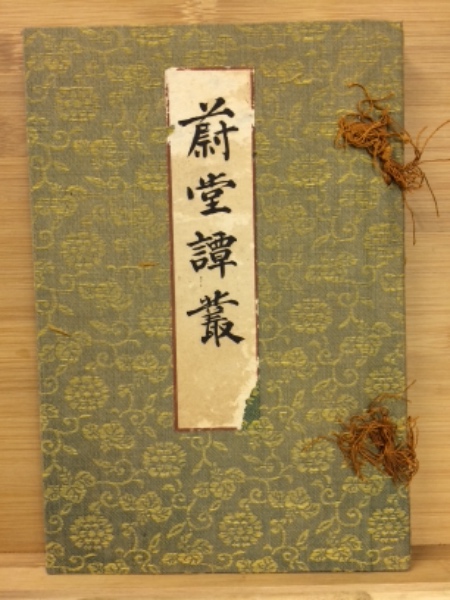 蔚堂譚叢